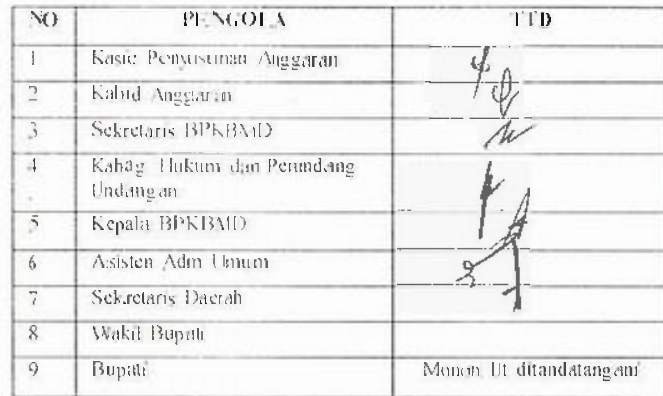 NO PENGOLA TTD
1 Kasie Penyusunan Anggaran
2 Kabid Anggaran
3 Sekretaris BPKBMD
4 Kabag Hukum dan Perundang
Undangan
5 Kepala BPKBMD
6 Asisten Adm Umum
7 Sekretaris Daerah
8 Wakil Bupati
9 Bupati Mohon Ut ditandatangani